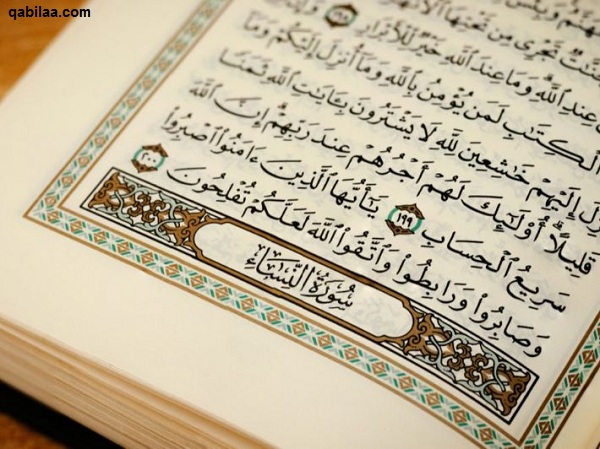 qabilaa.com
جَنَّٰتٌ تَجْرِى مِن تَحْتِهَا ٱلْأَنْهَٰرُ
عِندِ ٱللَّهِ وَمَا عِندَ ٱللَّهِ خَيْرٌ لِّلْأَبْرَارِ ١٩٨ وَإِنَّ
ٱلْكِتَٰبِ لَمَن يُؤْمِنُ بِٱللَّهِ وَمَآ أُنزِلَ إِلَيْكُمْ وَمَآ
أُنزِلَ إِلَيْهِمْ خَٰشِعِينَ لِلَّهِ لَا يَشْتَرُونَ بِـَٔايَٰتِ ٱللَّهِ ثَمَنًا
قَلِيلًا أُو۟لَٰٓئِكَ لَهُمْ أَجْرُهُمْ عِندَ رَبِّهِمْ إِنَّ ٱللَّهَ
سَرِيعُ ٱلْحِسَابِ ١٩٩ يَٰٓأَيُّهَا ٱلَّذِينَ ءَامَنُوا۟ ٱصْبِرُوا۟
وَصَابِرُوا۟ وَرَابِطُوا۟ وَٱتَّقُوا۟ ٱللَّهَ لَعَلَّكُمْ تُفْلِحُونَ ٢٠٠
سُورَةُ ٱلنِّسَاءِ